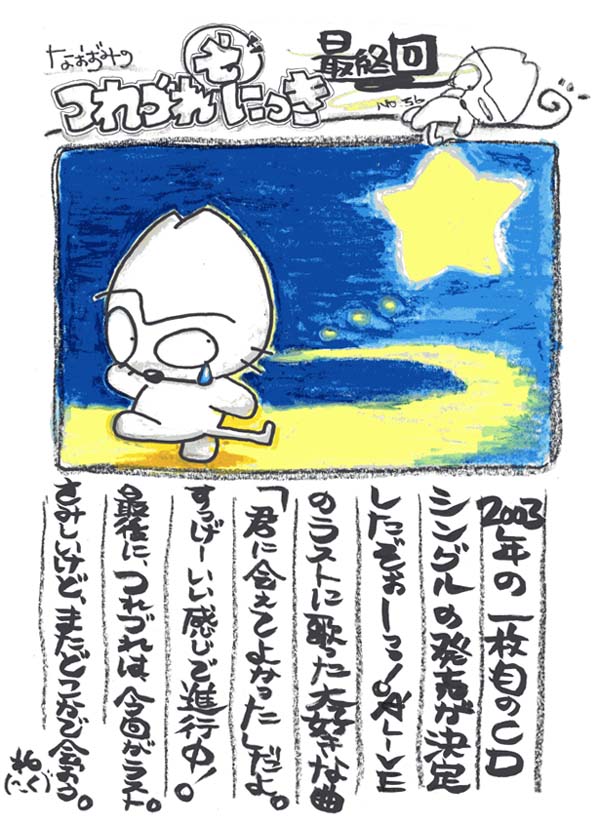 なおずみの
つれづれ
にっき
最終回
No.56
2003年の一枚目のCD
シングルの発売が決定
したぞぉーっ!。ALIVE
のラストに歌った大好きな曲
「君に会えてよかった」だよ。
すっげーいい感じで進行中!。
最後に、つれづれは、今回がラスト。
さみしいけど、またどっかで会おう。